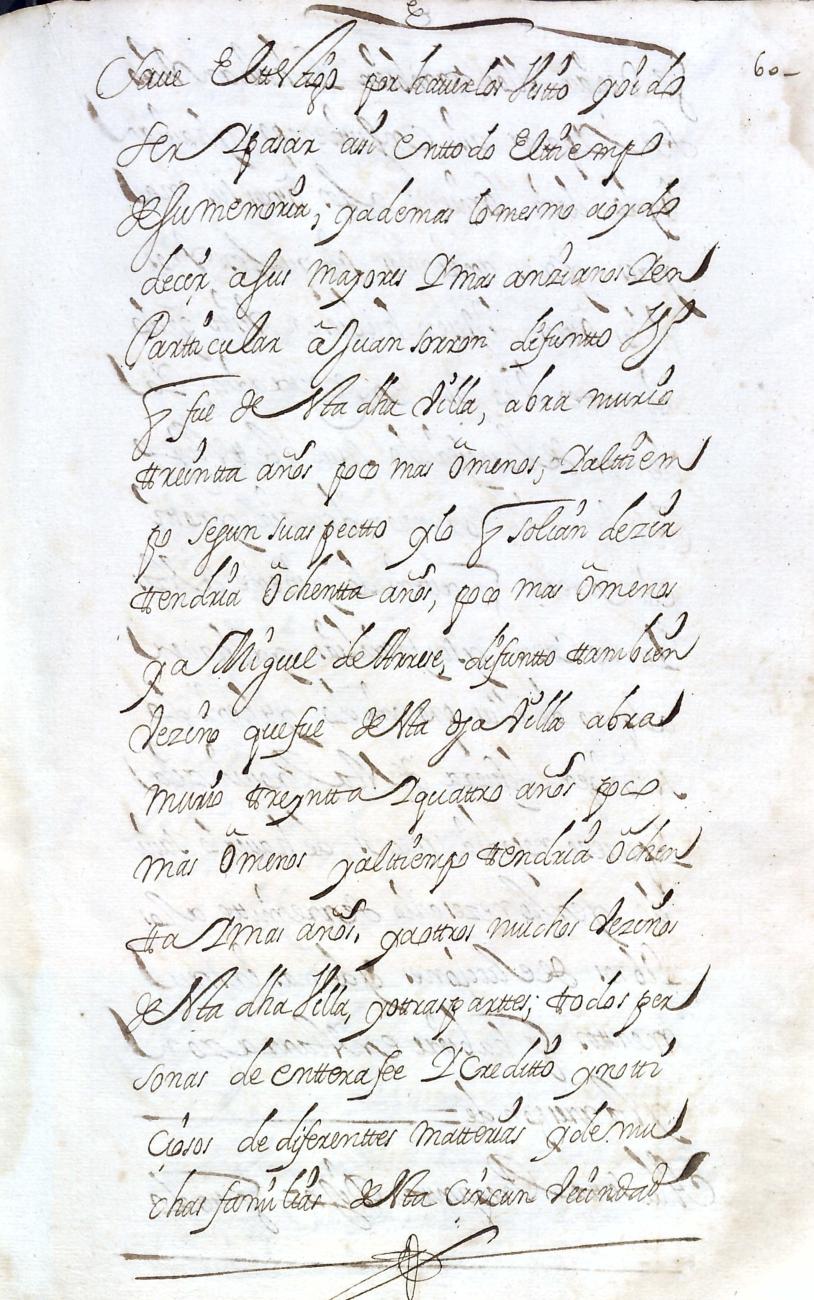 60-
Save El ttestigo por haverlos Visto y oido
ser y pasar asi en ttodo El tiempo
de su memoria; y ademas lo mesmo a oydo
decir a sus mayores y mas anzianos y en
Particular â Juan sorron difuntto
q̃ fue de esta dha Villa, abra murio
ttreintta años poco mas ô menos; y al tiem
po segun su aspectto y lo q̃ solian dezir
ttendria ôchentta años, poco mas ô menos
y a Miguel de difuntto ttambien
Vezino que fue de esta dha Villa abra
murio ttreyntta y quattro años poco
mas ô menos y al ttiempo ttendria ôchen
tta y mas años. y a ottros muchos Vezinos
de esta dha Villa, y ottras parttes; ttodos per
sonas de enttera fee y Creditto y notti
ciosos de diferenttes matterias y de mu
chas familias de esta Circun Vecindad